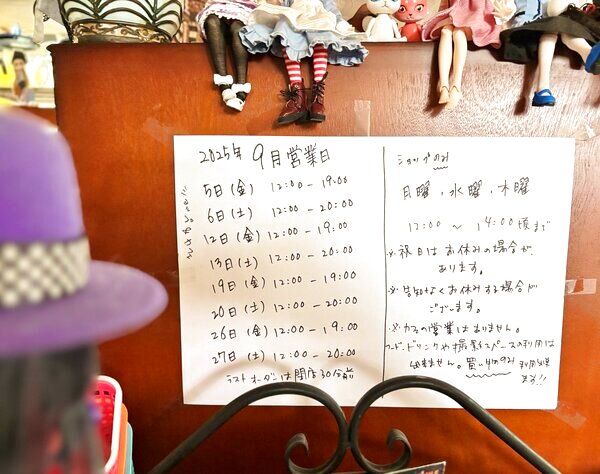 2025年 9月営業日
5日(金) 12:00 - 19:00
6日(土) 12:00 - 20:00
12日(金) 12:00 - 19:00
13日(土) 12:00 - 20:00
19日(金) 12:00 - 19:00
20日(土) 12:00 - 20:00
26日(金) 12:00 - 19:00
27日(土) 12:00 - 20:00
ラストオーダーは閉店30分前
ショップのみ
月曜、水曜、木曜
12:00 ~ 14:00頃まで
※祝日はお休みの場合が
あります。
※告知なくお休みする場合が
ございます。
※カフェの営業はありません。
フード、ドリンクや撮影スペースの利用は
出来ません。買い物のみ利用出来
ます!!